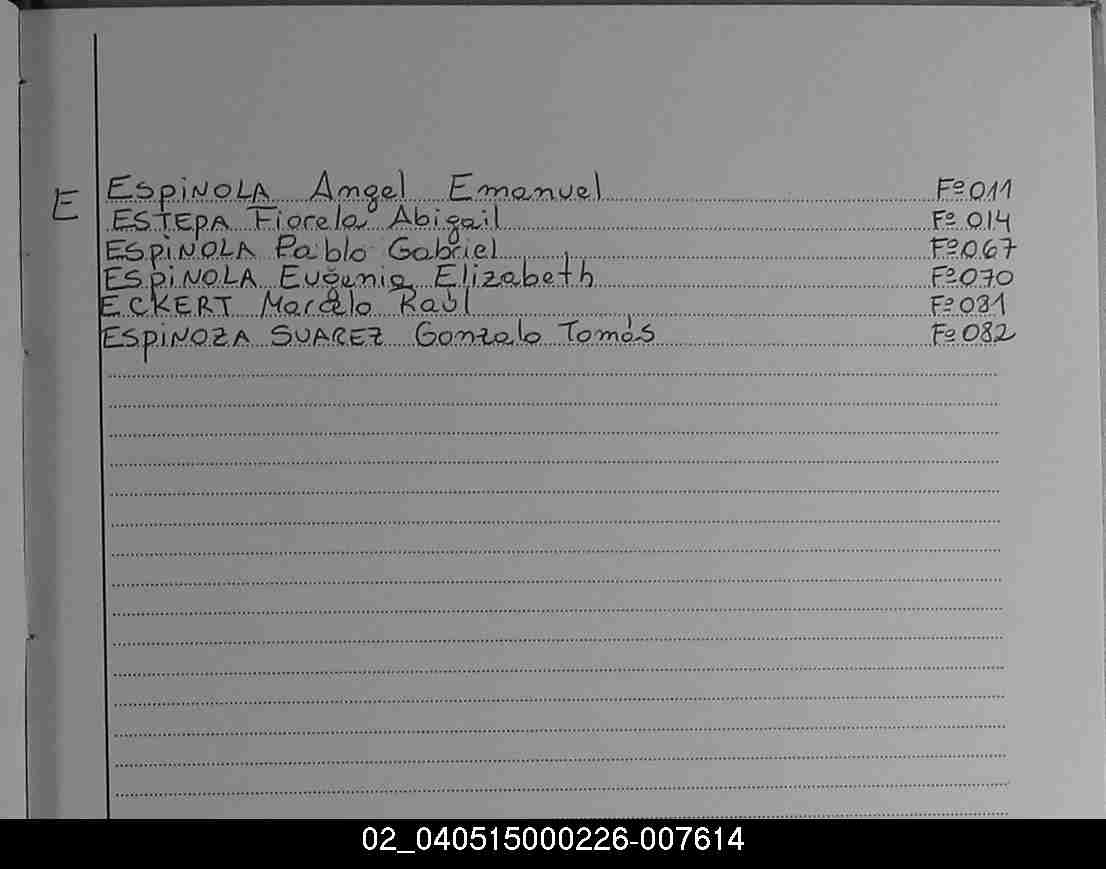 E
ESPINOLA Angel Emanuel Fº 011
ESTEPA Fiorela Abigail Fº 014
ESPINOLA Pablo Gabriel Fº 067
ESPINOLA Eugenia Elizabeth Fº 070
ECKERT Marcelo Raúl Fº 081
ESPINOZA SUAREZ Gonzalo Tomás Fº 082
02_040515000226-007614